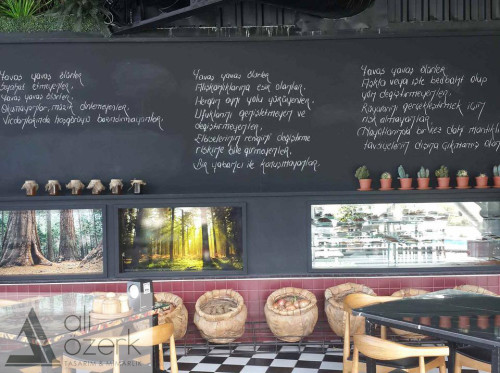 Yavaş yavaş ölürler
Seyahat etmeyenler,
Yavaş yavaş ölürler
Okumayanlar, müzik dinlemeyenler,
Vicdanlarında hoşgörüyü barındırmayanlar.
Yavaş yavaş ölürler
Alışkanlıklarına esir olanlar,
Hergün aynı yolu yürüyenler
Ufuklarını genişletmeyen ve
değiştirmeyenler,
Elbiselerinin rengini değiştirme
riskine bile girmeyenler,
Bir yabancı ile konuşmayanlar.
Yavaş yavaş ölürler
Aşkta veya işte bedbaht olup
yön değiştirmeyenler,
Rüyasını gerçekleştirmek için
risk almayanlar
Hayatlarında bir kez dahi mantıklı
tavsiyelerin dışına çıkmamış olan
ali
özerk
TASARIM & MİMARLIK